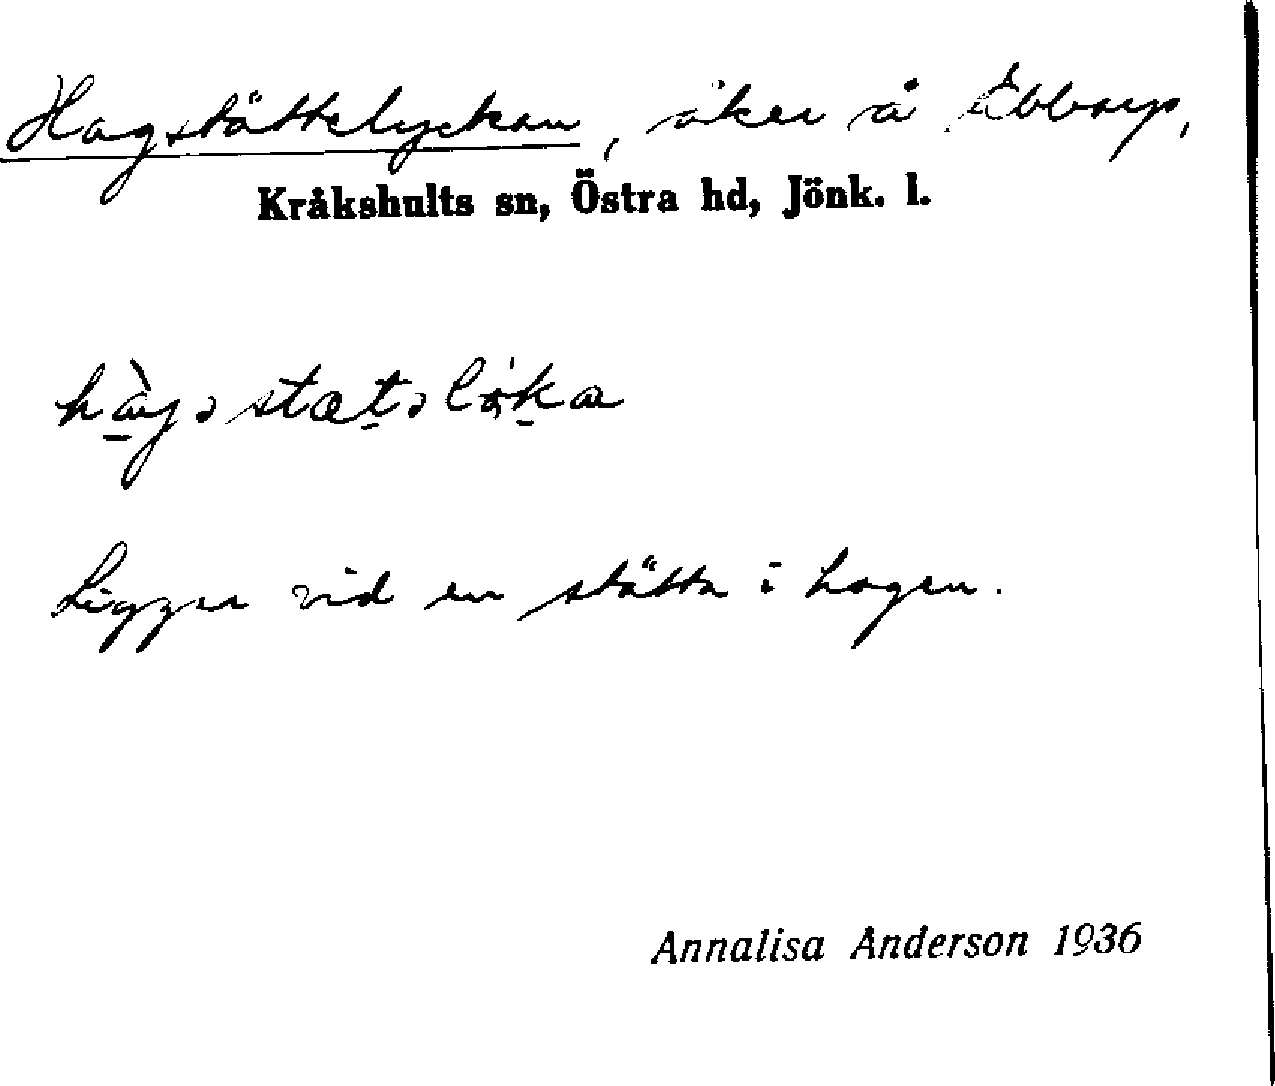 Hagstättelyckan, åker å Ebbarp,
Kråkshults sn, Östra hd, Jönk. l.
Ligger vid en stätta i hagen.
Annalisa Anderson 1936